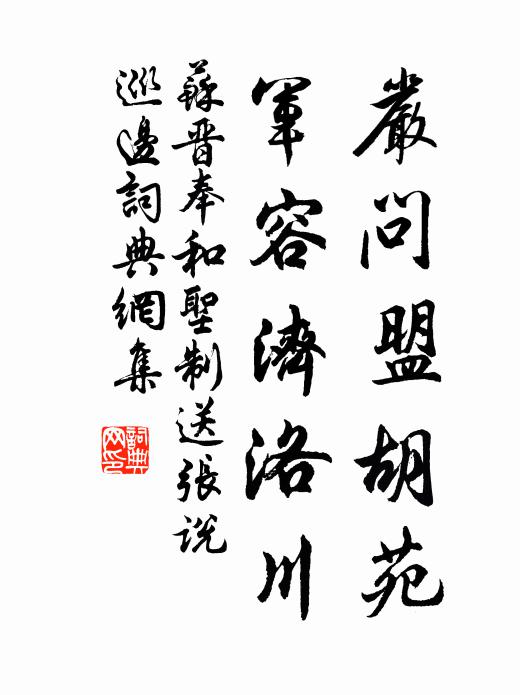 嚴問盟胡苑
軍容濟洛川
蘇晋奉和聖制送張説
巡邊詞典網集
詞典网印